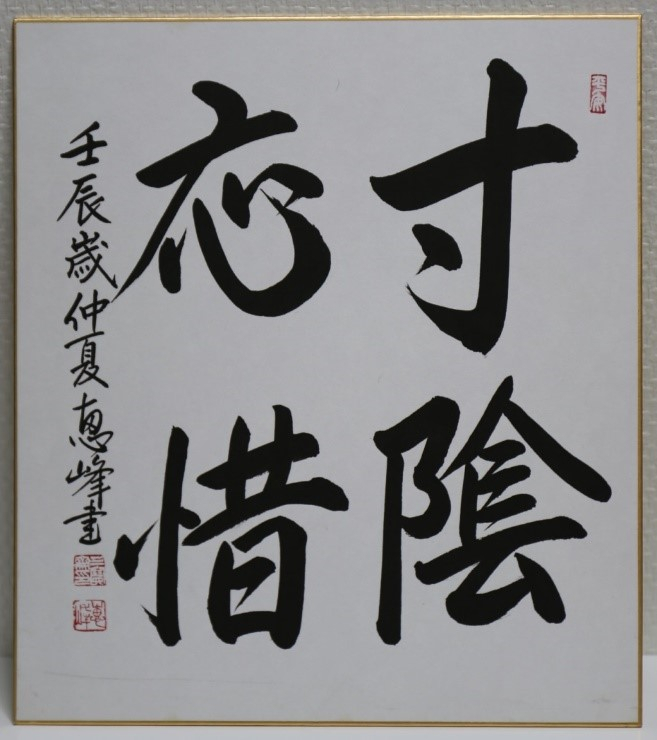 寸陰
応惜
壬辰歳仲夏恵峰書